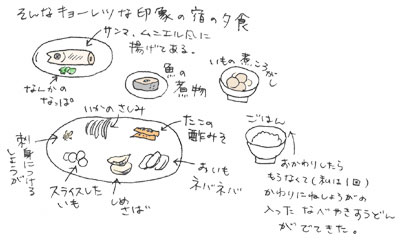 そんなキョーレツな印象の宿の夕食
サンマ、ムニエル風に
揚げてある。
なんかの
なっぱ
魚の
煮物
いもの煮ころがし
いかのさしみ
たこの
酢みそ
ごはん
刺身につける
しょうが
スライスした
いも
しめ
さば
おいも
ネバネバ
おかわりしたら
もうなくて(私は1回)
かわりにねしょうがの
入ったなべやきうどん
がでてきた。